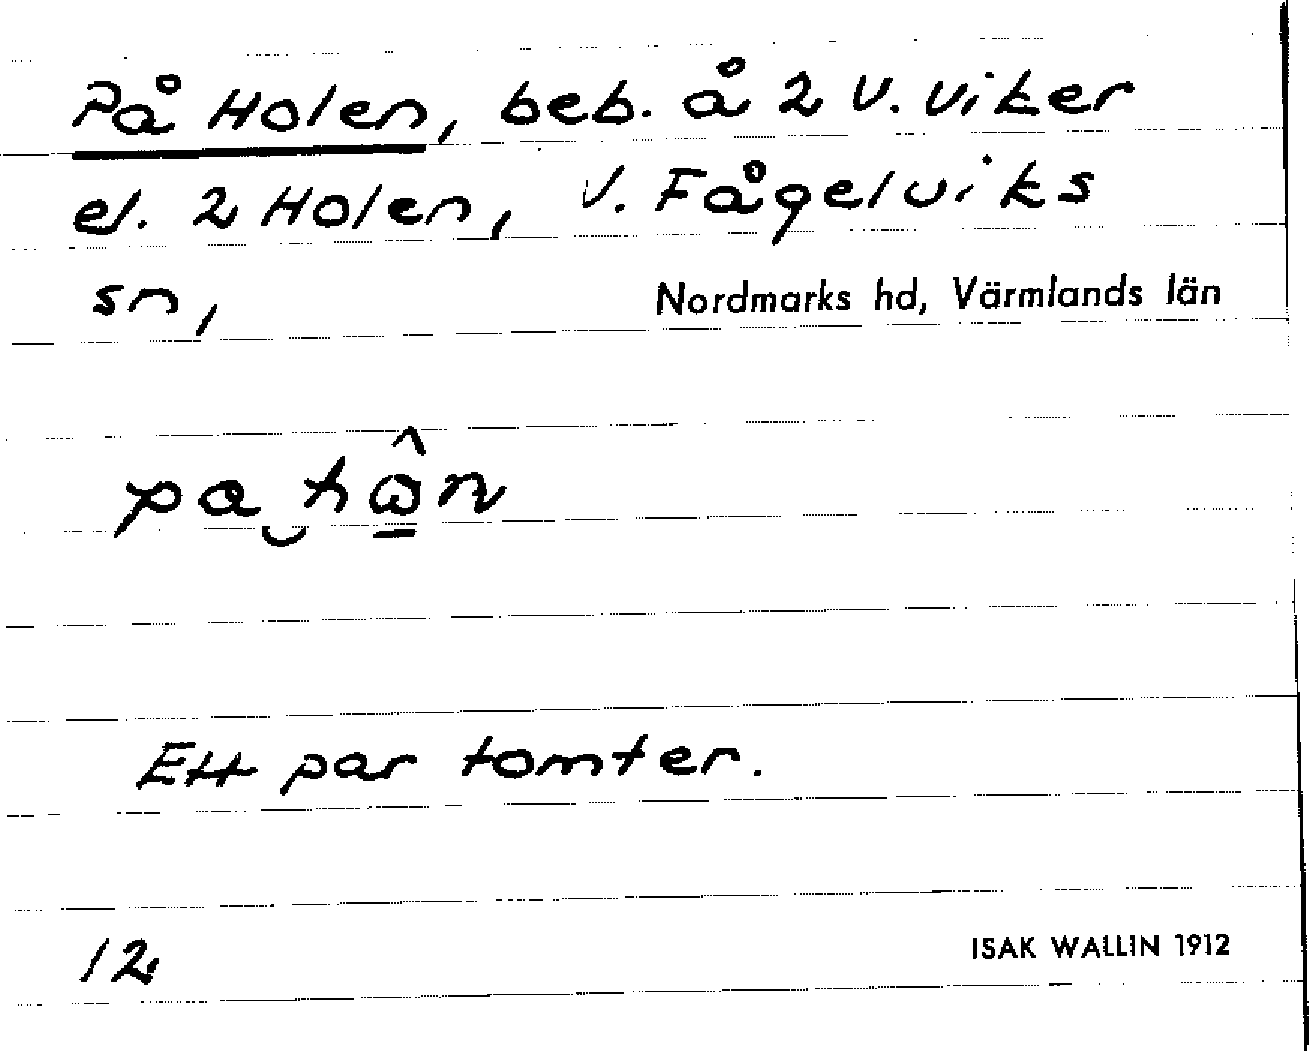 På Holen, beb. å 2 V. Viker
el. 2 Holen, V. Fågelviks
sn, Nordmarks hd, Värmlands län
pa‿hω̱̂n
Ett par tomter.
12 ISAK WALLIN 1912